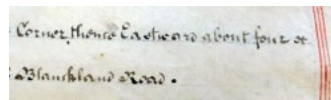 Corner, thence Eastward about four et
Blanckland Road.